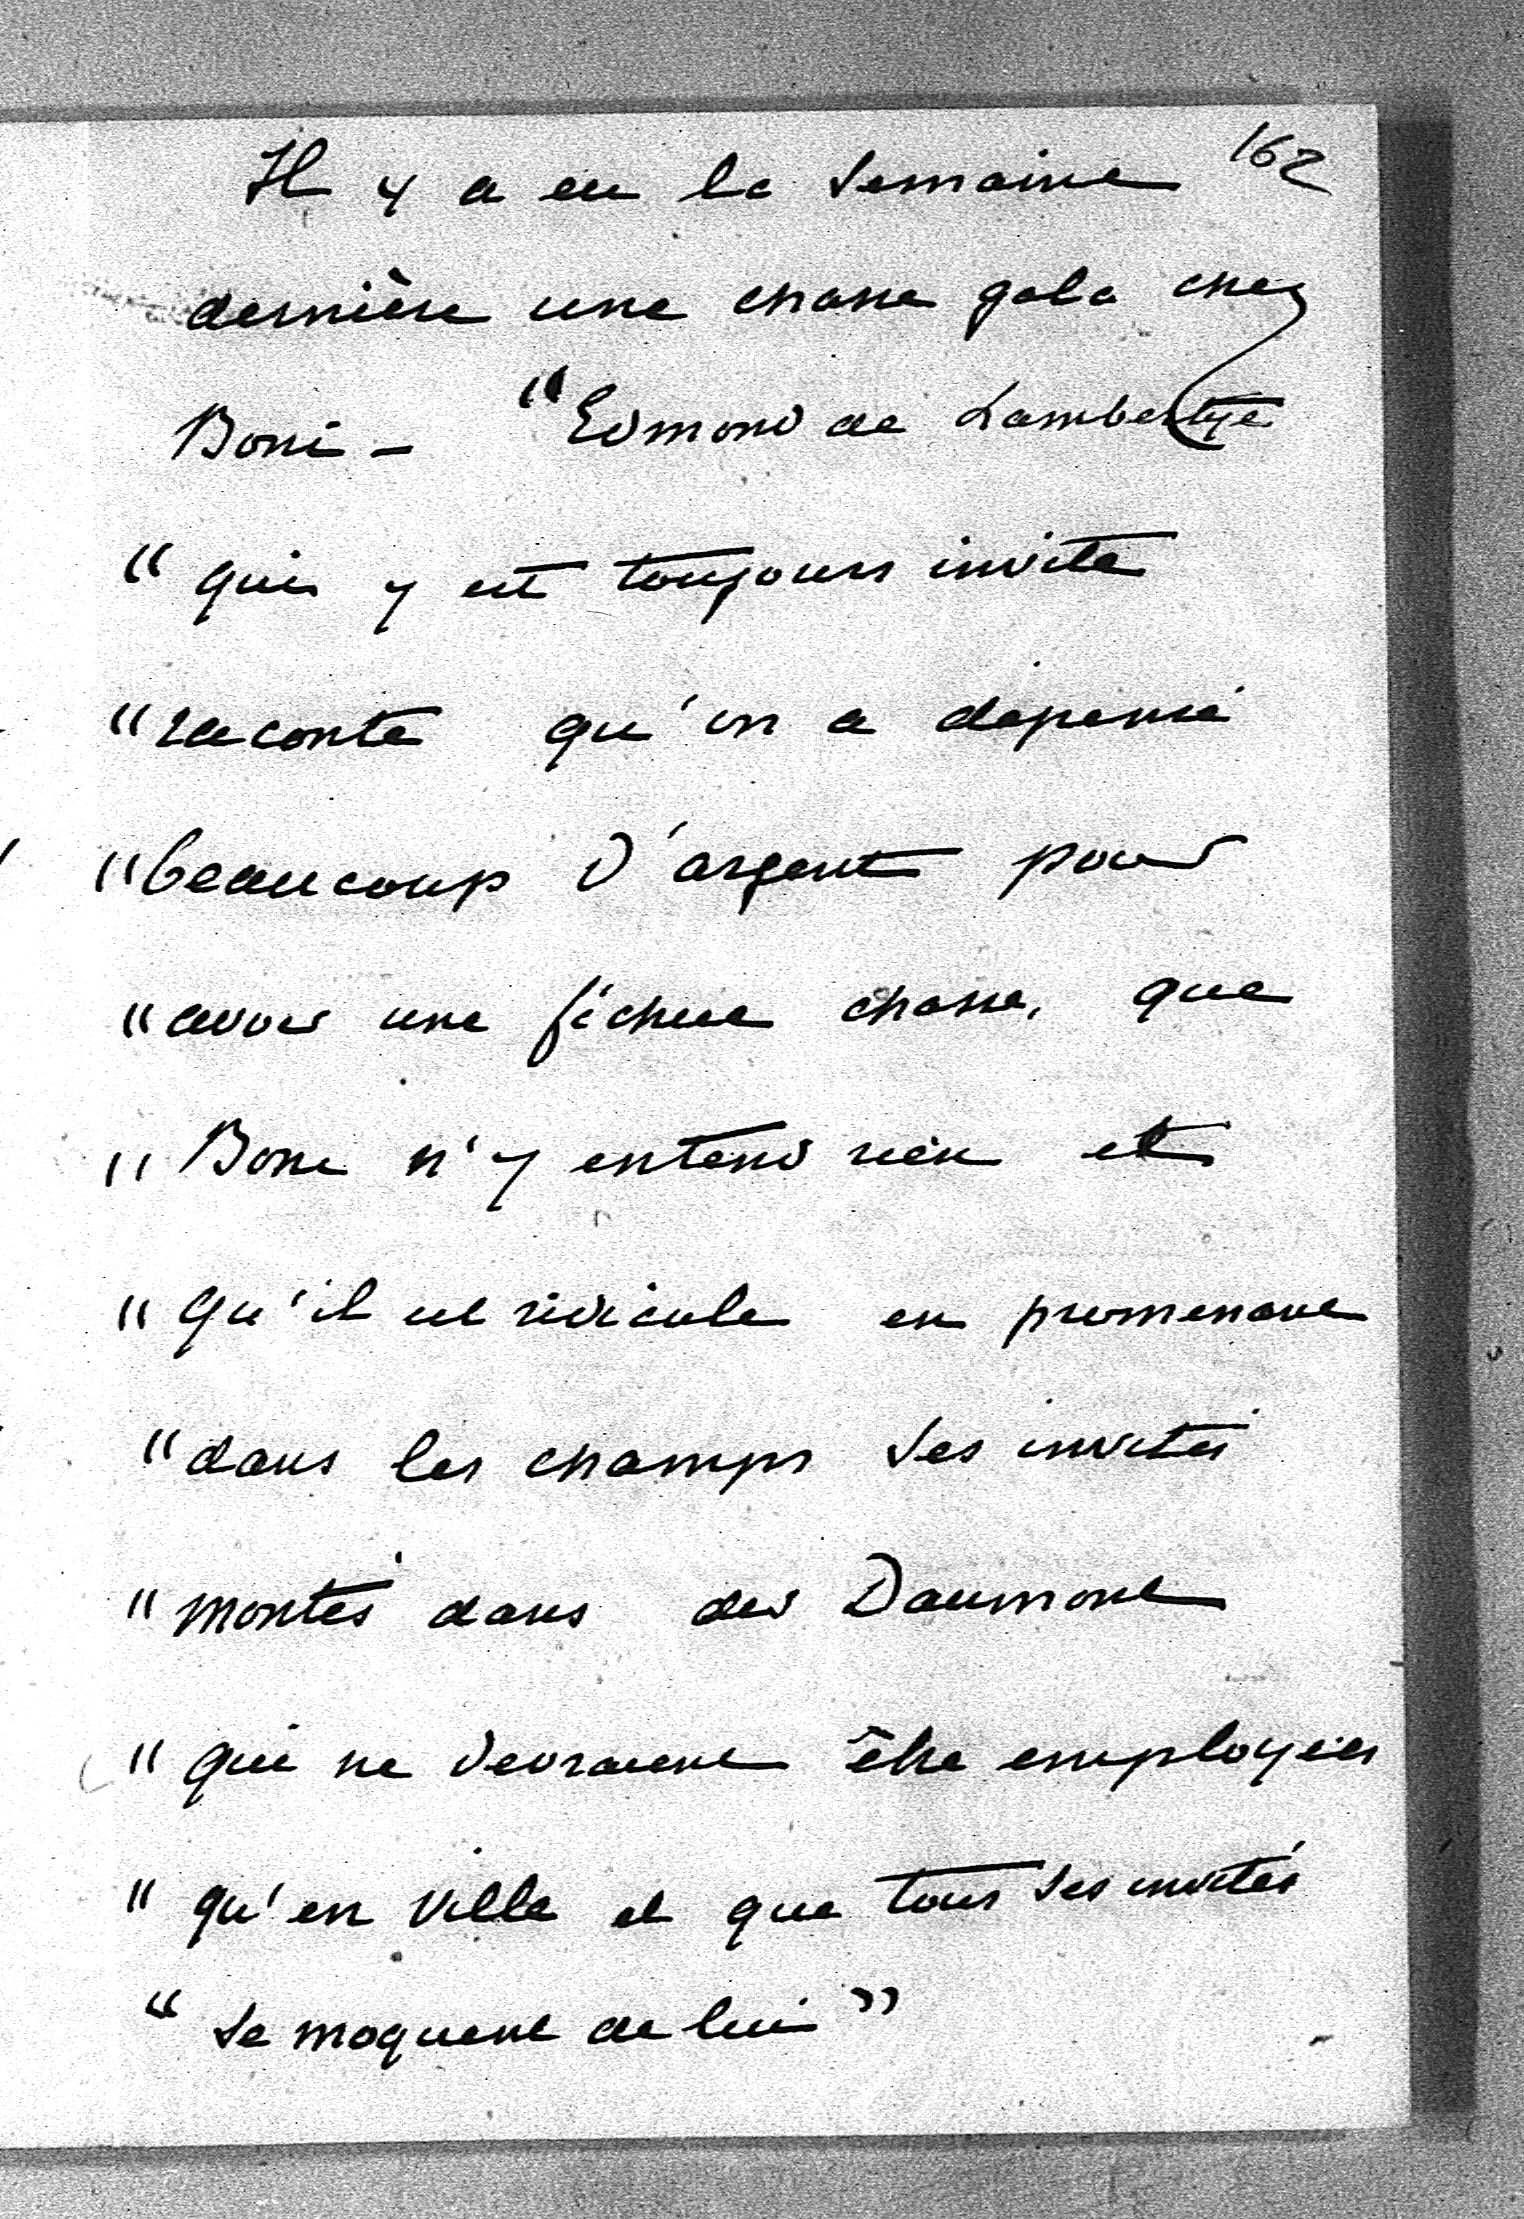 162
Il y a eu la semaine
dernière une chasse gala chez
Boni - "Edmond de Lambertye
" qui y est toujours invité
" raconte qu'on a dépensé
" beaucoup d'argent pour
" avoir une fichue chasse, que
" Boni n'y entend rien et
" qu'il est ridicule en promenant
" dans les champs ses invités
" montés dans des Daumont
" qui ne devraient être employées
" qu'en ville et que tous ses invités
" se moquent de lui "